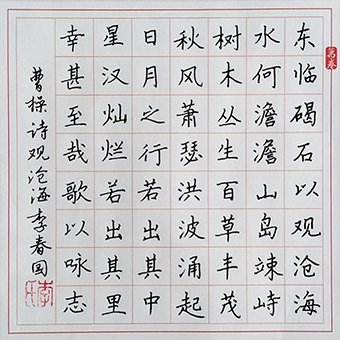 东临碣石以观沧海
水何澹澹山岛竦峙
树木丛生百草丰茂
秋风萧瑟洪波涌起
日月之行若出其中
星汉灿烂若出其里
幸甚至哉歌以咏志
曹操诗观沧海李春国